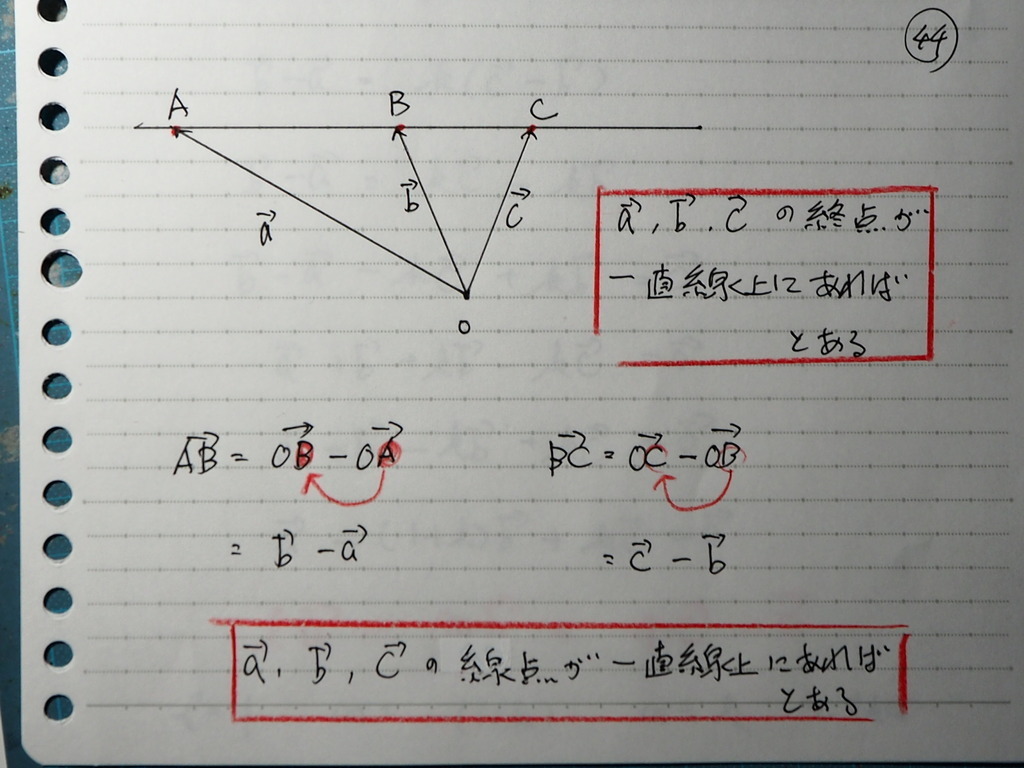 44
A B C
a⃗ b⃗ c⃗
O
a⃗, b⃗, c⃗ の終点が
一直線上にあれば
とある
AB⃗ = OB⃗ − OA⃗
= b⃗ − a⃗
BC⃗ = OC⃗ − OB⃗
= c⃗ − b⃗
a⃗, b⃗, c⃗ の線点が一直線上にあれば
とある